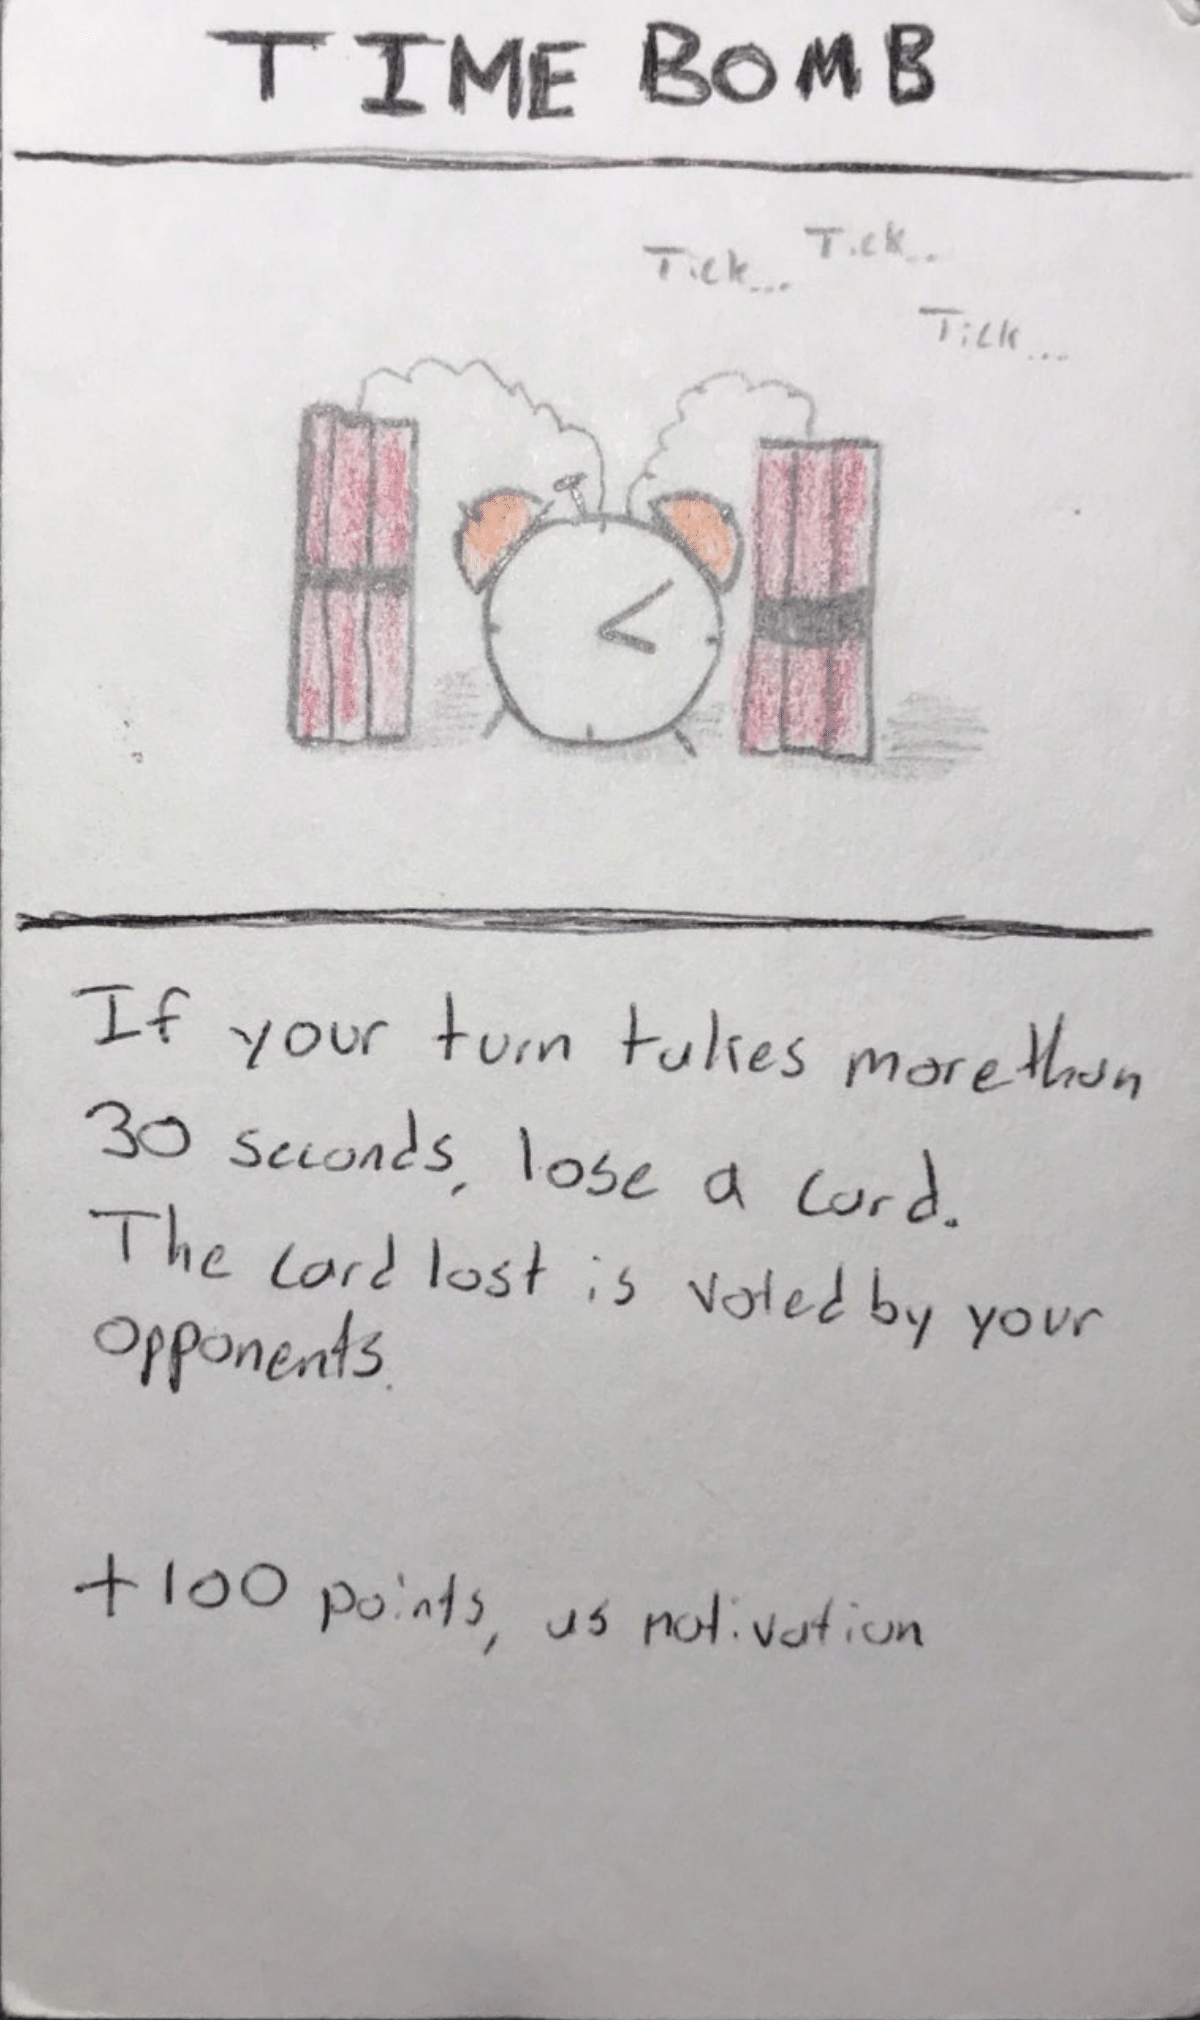 TIME BOMB
Tick... Tick..
Tick...
If your turn takes more than
30 seconds, lose a card.
The card lost is voted by your
opponents.
+100 points, as motivation